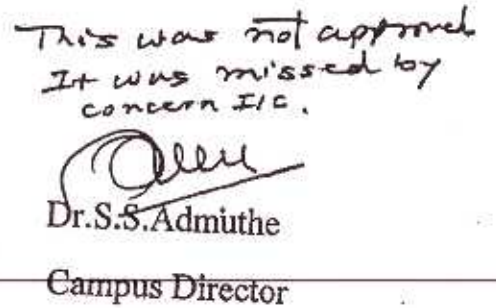 This was not approved
It was missed by
concern I/C.
Dr.S.S.Admuthe
Campus Director